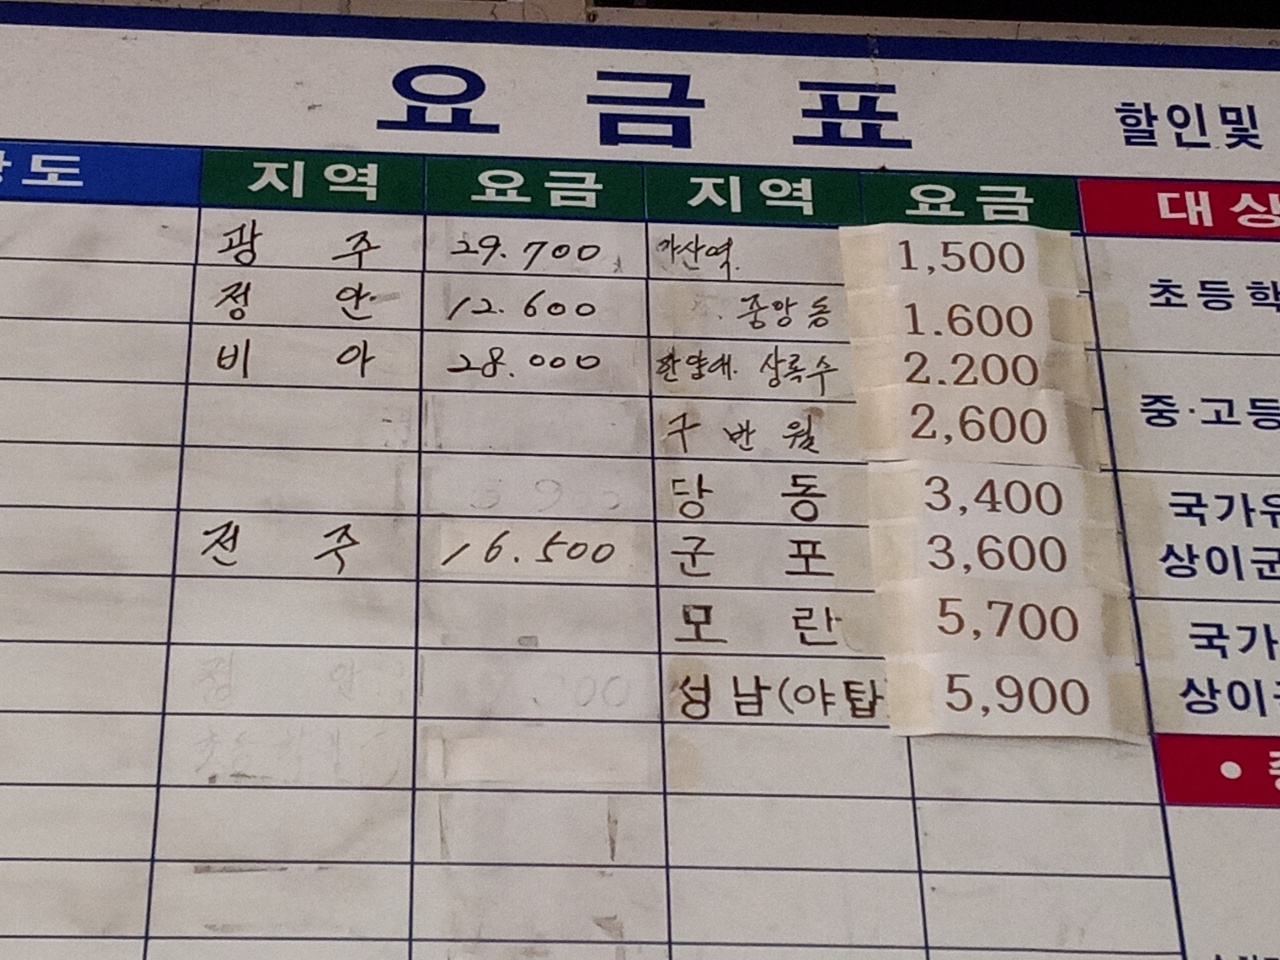 요금표 할인및
도 지역 요금 지역 요금 대상
광주 29.700 1,500
정안 12.600 중앙동 1.600 초등학
비아 28.000 한양대. 상록수 2.200
구반월 2,600 중·고등
당동 3,400 국가유
전주 16.500 군포 3,600 상이군
모란 5,700 국가
성남(야탑 5,900 상이